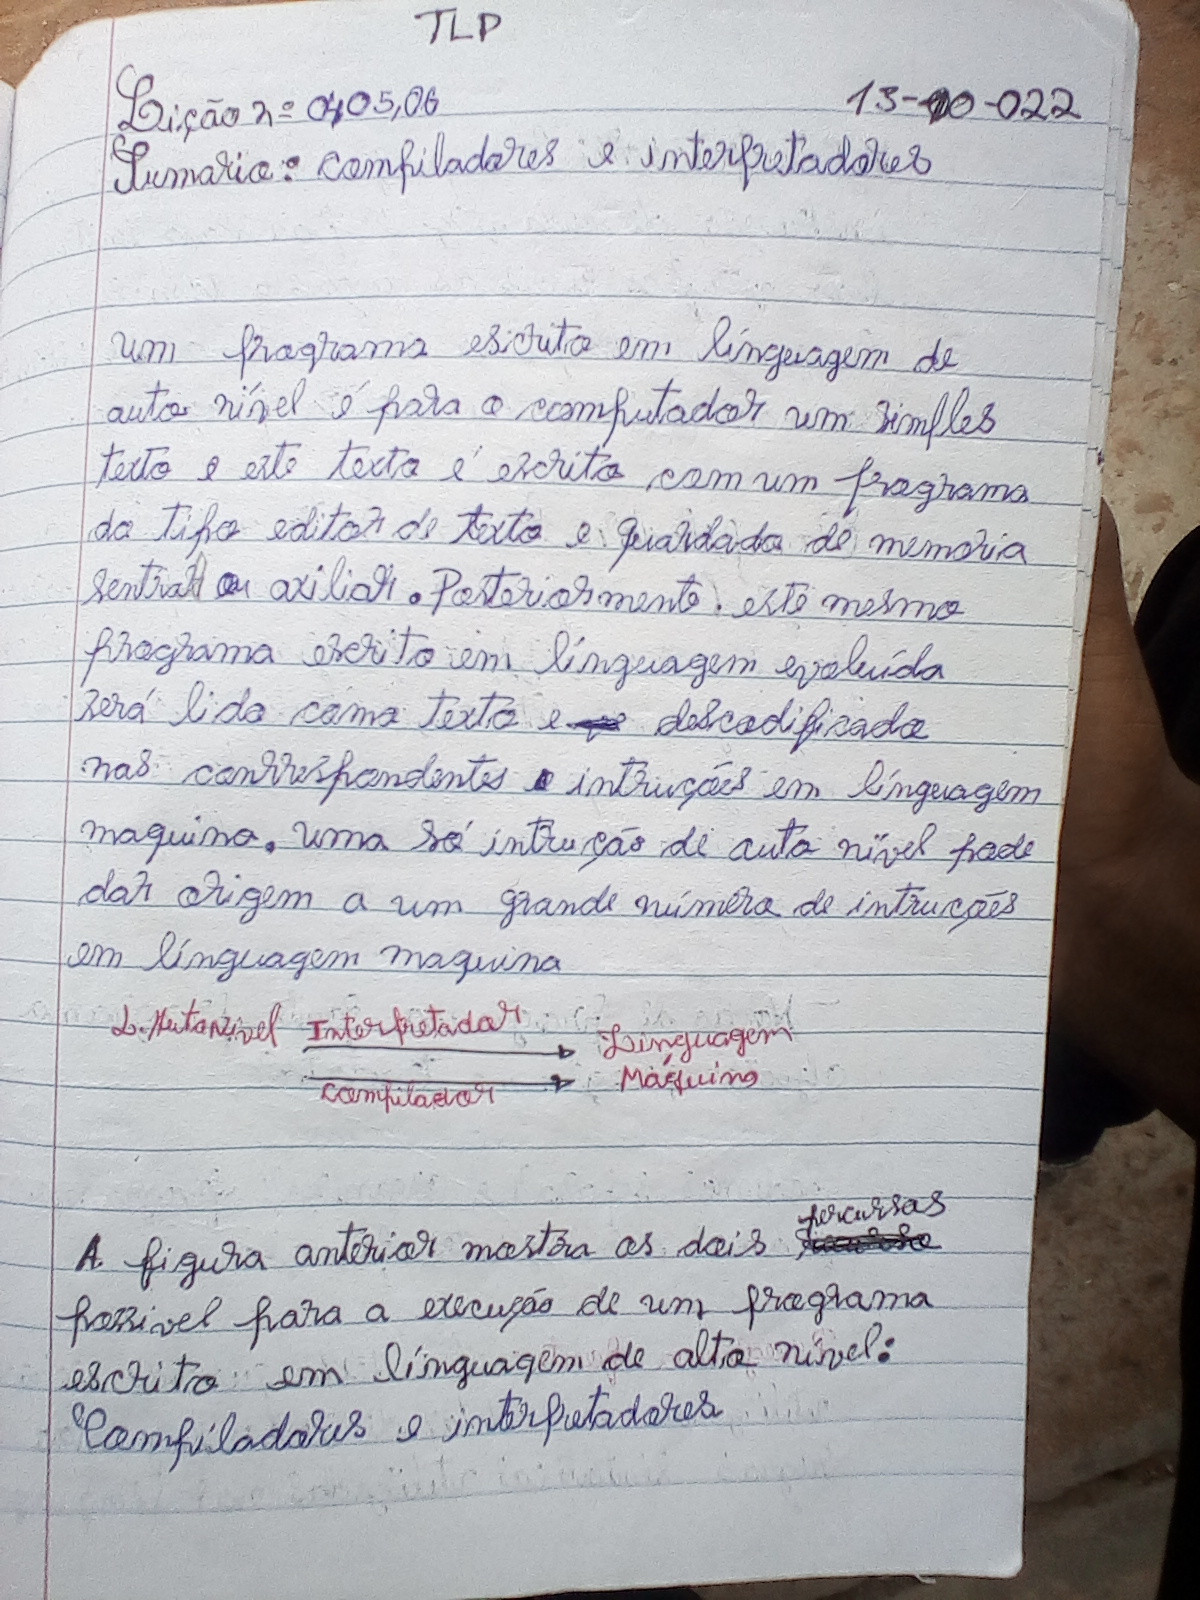 TLP
Lição nº 0405,06 13-10-022
Sumario: compiladores e interpretadores
um programa escrito em línguagem de
auto nível é para o computador um simples
texto e este texto é escrito com um programa
do tipo editor de texto e guardado de memoria
sentral ou axiliar. Posteriormente. este mesmo
programa escrito em línguagem evoluída
será lido como texto e descodificado
nas correspondentes intruções em línguagem
maquina. uma só intrução de auto nível pode
dar origem a um grande número de intruções
em línguagem maquina
L. Auto Nível Interpretador Linguagem
Compilador Máquina
A figura anterior mostra os dois percursos
possivel para a execução de um programa
escrito em línguagem de alto nível:
Compiladores e interpretadores